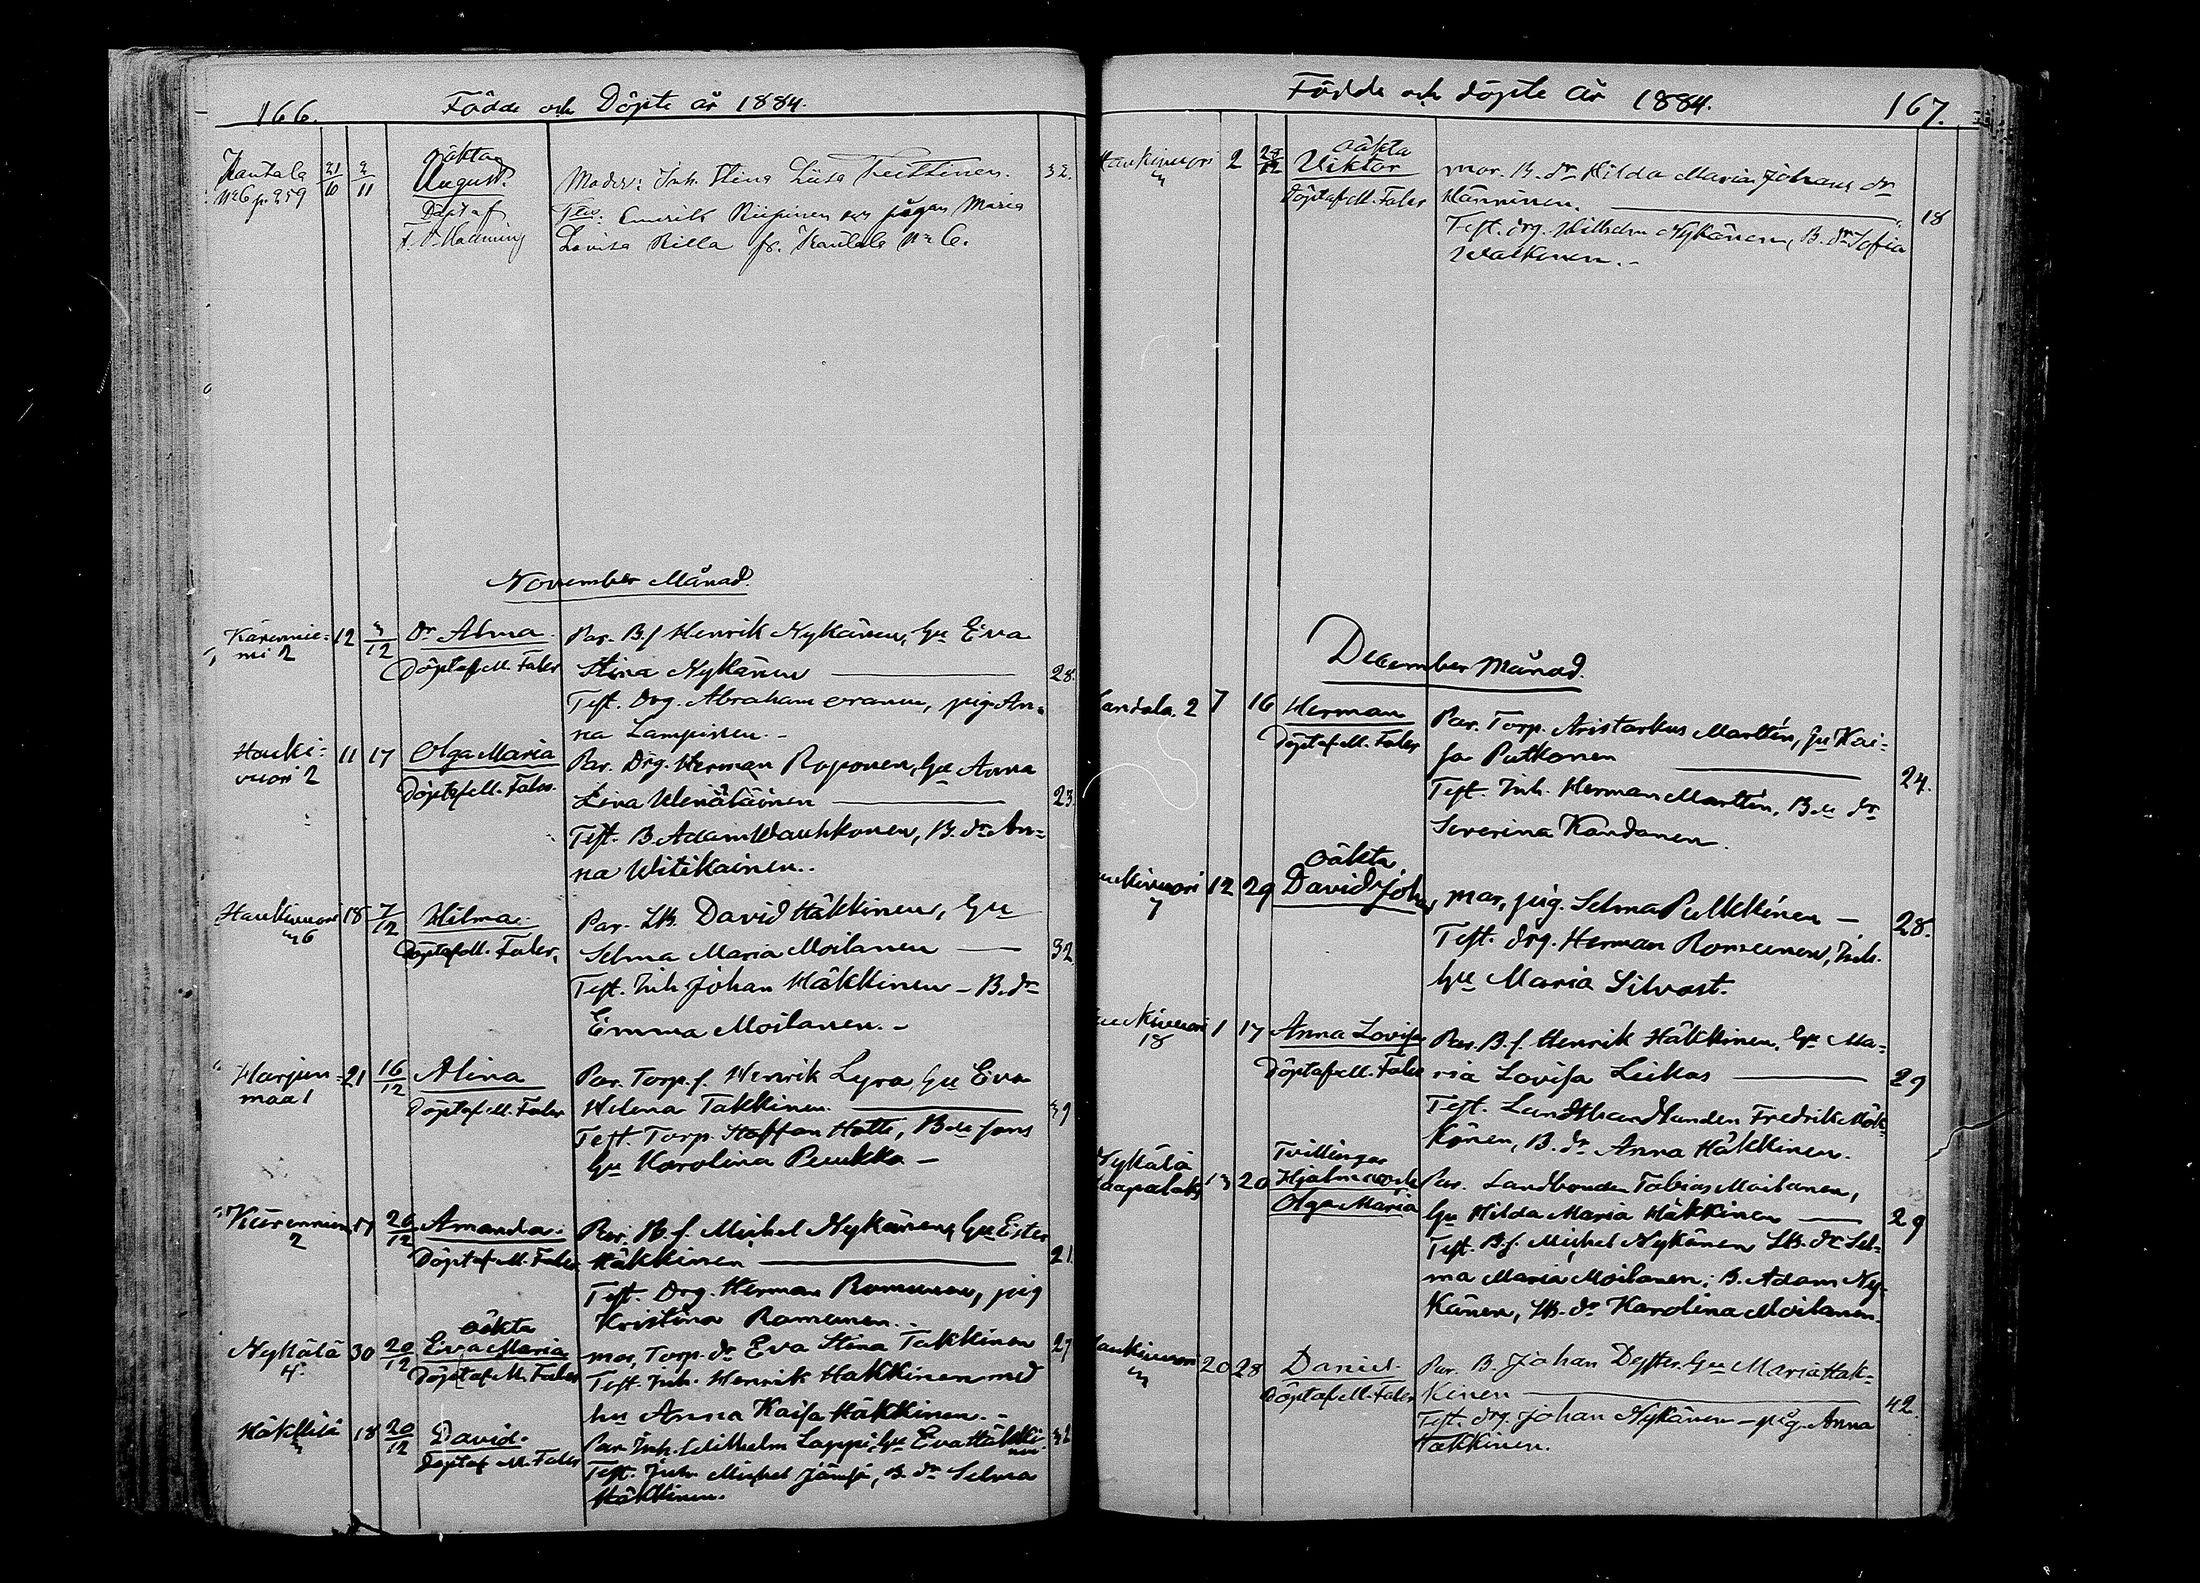 166.
Födde och Döpte år 1884.
Kautala
No 6 p. 259
21/10
2/11
oäkta
August.
Döpt af
Moder: Inh. Stina Liisa
32.
Lovisa Rilla fr. Kautala No 6.
November Månad.
Kärenmie-
mi 2
12
3/12
dr Alma.
Döpt af M. Faler
Par. B.f Henrik Nykänen, hu Eva
Stina Nykänen
28.
Test. Drg. Abraham Oranen, pig. An-
na Lampinen. -
Hauki-
vuori 2
11
17
Olga Maria
Döpt af M. Faler.
Par. Drg. Herman Roponen, hu Anna
Lena Wenäläinen
23
Test. B. Adam Wauhkonen, B. dr An-
na Witikainen. -
Haukivuori
6
18
7/12
Hilma.
Döpt af M. Faler.
Par. LB. David Häkkinen, hu
Selma Maria Moilanen
32.
Test. Inh Johan Häkkinen - B. dr
Emma Moilanen. -
Harjun-
maa 1
21
16/12
Alina
Döpt af M. Faler
Par. Torp. f. Henrik Lyra, hu Eva
Helena Takkinen.
39
Test. Torp. Staffan Hatti, B. sons
hu Karolina Puukka -
Kärenniem
2
17
20/12
Amanda.
Döpt af M. Faler
Par. B. f. Michel Nykänen, hu Ester
Häkkinen
21.
Test. Drg. Herman Romunen, pig
Kristina Romunen. -
Nykälä
4.
30
20/12
oäkta
Eva Maria
Döpt af M. Faler
mor, Torp. dr Eva Stina Takkinen
27
Test. Inh. Henrik Häkkinen med
hu Anna Kaisa Häkkinen. -
Häkkilä
3
18
20/12
David.
Döpt af M. Faler
Par. Inh. Wilhelm Lappi, hu Eva Häkki-
nen
32
Test. Inh. Michel Jämsä, B. dr Selma
Häkkinen.
Födde och döpte år 1884.
167.
Haukivuori
3
2
28/12
oäkta
Viktor
Döpt af M. Faler
mor. B. dr Hilda Maria Johans dr
Hänninen.
18
Test. drg. Wilhelm Nykänen, B. dr Sofia
Walkonen. -
December Månad.
Kandala. 2
7
16
Herman
Döpt af M. Faler
Par. Torp. Aristarkus Marttin, hu Kai-
sa Putkonen
24.
Test. Inh. Herman Marttin, B. dr
Severina Kandanen.
Haukivuori
7
12
29
oäkta
David Joh
mor, pig. Selma Pulkkinen -
28.
Test. drg. Herman Romunen, Inh.
hu Maria Silvast.
Haukivuori
18
1
17
Anna Lovisa
Döpt af M. Faler
Par. B. f. Henrik Häkkinen, hu Ma-
ria Lovisa Leikas
29
Test. Landthandlanden Fredrik Mök-
könen, B. dr Anna Häkkinen.
Nykälä
Haapalaks
13
20
Tvillingar
Hjalmar och
Olga Maria
Par. Landbonden Tobias Moilanen,
hu Hilda Maria Häkkinen
29
Test. B.f. Michel Nykänen LB. dr Sel-
ma Maria Moilanen; B. Adam Ny-
känen, LB. dr Karolina Moilanen.
Haukivuori
3
20
28
Daniel.
Döpt af M. Faler
Par. B. Johan Deffter hu Maria Häk-
kinen
42.
Test. drg. Johan Nykänen - pig. Anna
Häkkinen.